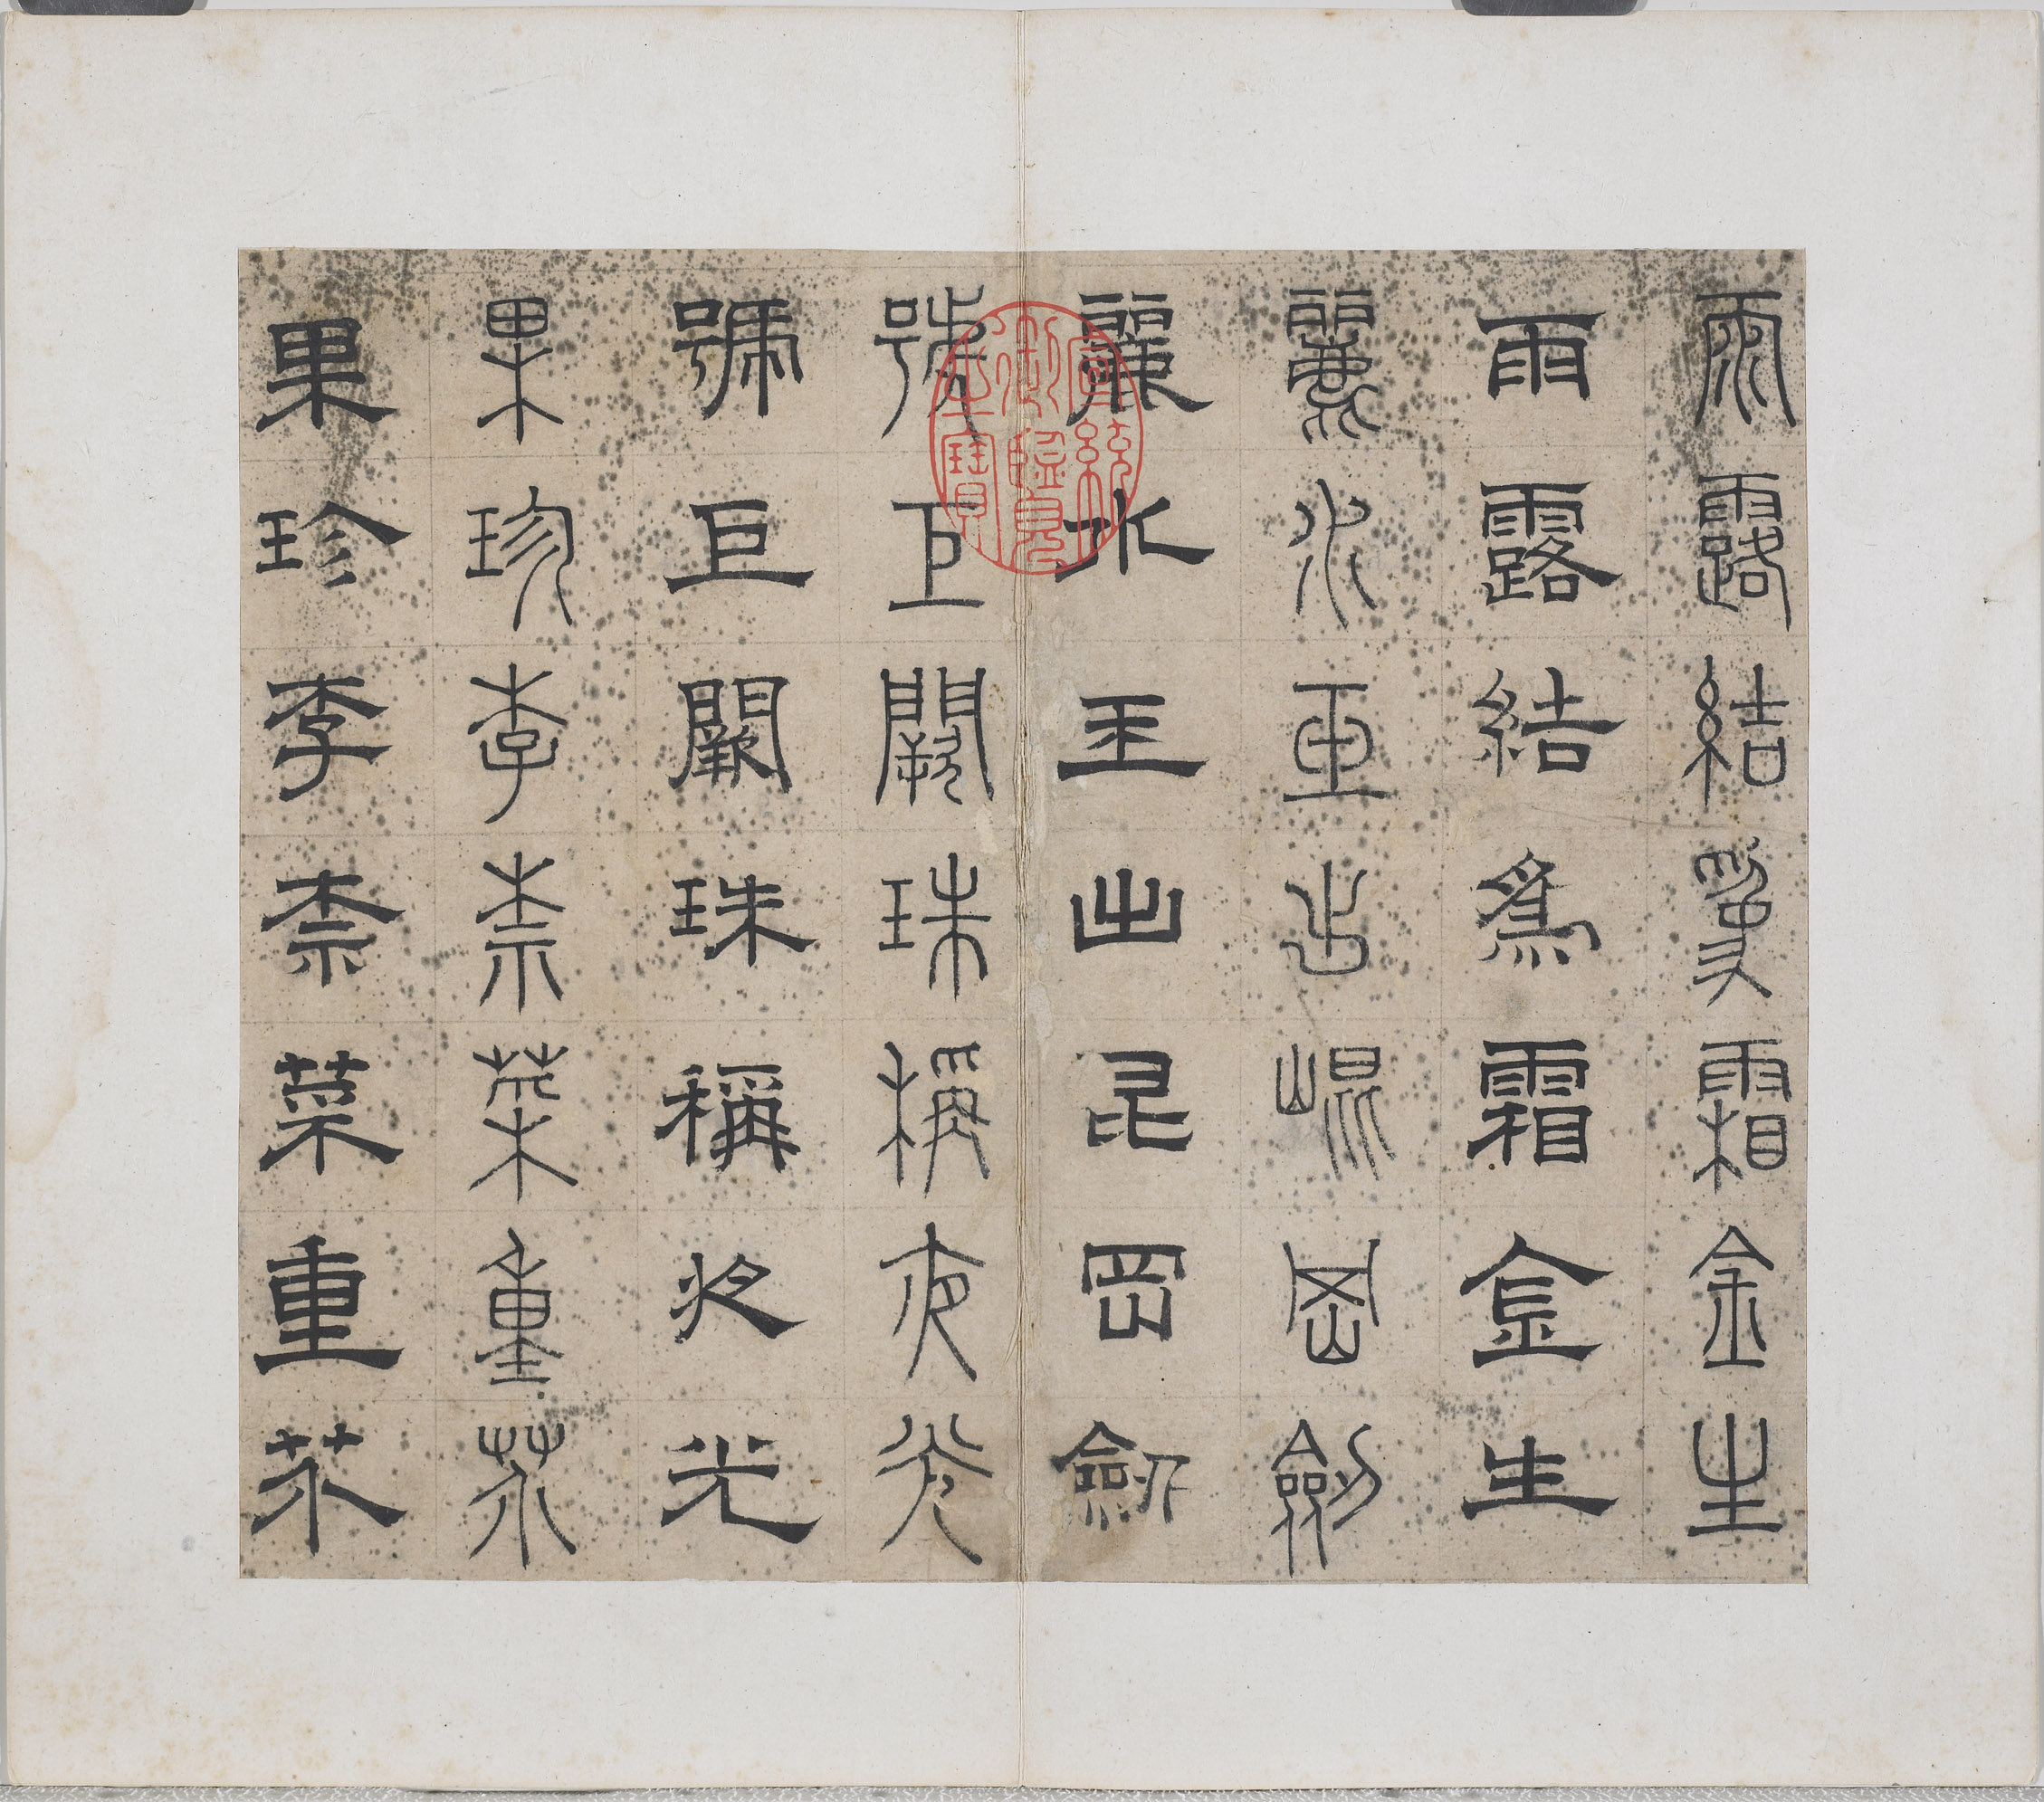 雨露結為霜金生
雨露結為霜金生
麗水玉出崐岡劍
麗水玉出昆岡劍
號巨闕珠稱夜光
號巨闕珠稱夜光
果珍李柰菜重芥
果珍李柰菜重芥
宣統御覽之寶